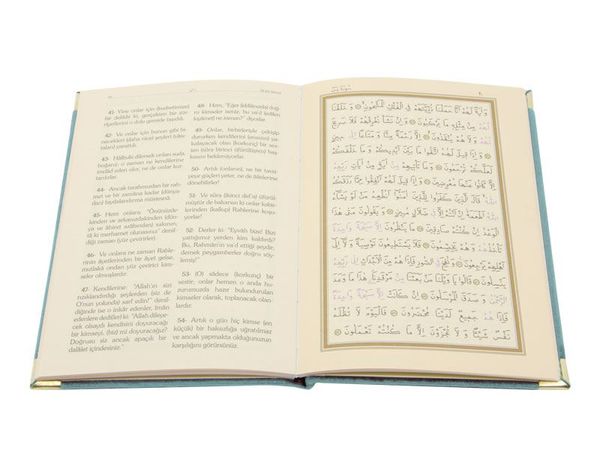 41- Yine onlar için (kudretimize)
bir delildir ki, gerçekten biz zür-
riyetlerini o dolu gemide taşıdık.
42- Ve onlar için bunun gibi bi-
necekleri (daha nice) şeyleri (ha-
lılara) yarattık.
43- Hâlbuki dilersek onları suda
boğarız; o zaman ne kendilerine
imdâd eden olur, ne de onlar kur-
tarılırlar.
44- Ancak tarafımızdan bir rah-
met ve bir zamâna kadar (dünya-
dan) faydalandırma olarak
45- Hem onlara: "Önünüzde-
kinden ve arkanızdakinden (dün-
ya ve âhiret azâbından) sakının,
tâ ki merhamet olunasınız!" denil-
diği zaman (yüz çevirirler).
46- Ve onlara ne zaman Rable-
rinin âyetlerinden bir âyet gelse,
mutlakā ondan yüz çevirici kim-
seler olmuşlardır.
47- Kendilerine: "Allah'ın sizi
rızıklandırdığı şeylerden (siz de
O'nun yolunda) sarf edin!" denil-
diğinde ise o inkâr edenler, îmân
edenlere dediler ki: "Allah dileye-
cek olsaydı kendisini doyuracağı
bir kimseyi, (hiç) mi doyuracağız?
Doğrusu siz ancak apaçık bir
dalâlet içindesiniz."
48- Hem, "Eğer (iddiânızda) doğ-
ru kimseler iseniz, bu va'd (edilen
kıyâmet) ne zaman?" diyorlar.
49- Onlar, birbirleriyle çekişip
dururlarken kendilerini ansızın ya-
kalayacak olan (korkunç) bir ses-
ten (sûra birinci üfürülüşten) baş-
kasını beklemiyorlar.
50- Artık (onların), ne bir tavsi-
yeye güçleri yeter, ne de âilelerine
dönebilirler!
51- Ve sûra (ikinci def'a) üfürül-
müştür de bakarsın ki onlar kabir-
lerinden (kalkıp) Rablerine koşu-
yorlar!
52- Derler ki: "Eyvâh bize! Bizi
yattığımız yerden kim kaldırdı?
Bu, Rahmân'ın va'd ettiği şeydir,
demek peygamberler doğru söyle-
miş!"
53- (O) sâdece (korkunç) bir
sestir, onlar hemen o anda hu-
zurumuzda hazır bulundurulan
kimseler olarak, toplanacak olan-
lardır.
54- Artık o gün hiç kimse (en
küçük) bir haksızlığa uğratılmaz
ve ancak yapmakta olduğunuzun
karşılığını görürsünüz.
وَاٰيَةٌ لَهُمْ اَنَّا حَمَلْنَا ذُرِّيَّتَهُمْ فِي الْفُلْكِ الْمَشْحُونِ ۝ وَخَلَقْنَا
لَهُمْ مِنْ مِثْلِهِ مَا يَرْكَبُونَ ۝ وَاِنْ نَشَأْ نُغْرِقْهُمْ فَلَا صَرِيخَ
لَهُمْ وَلَا هُمْ يُنْقَذُونَ ۝ اِلَّا رَحْمَةً مِنَّا وَمَتَاعًا اِلٰى حِينٍ
۝ وَاِذَا قِيلَ لَهُمُ اتَّقُوا مَا بَيْنَ اَيْدِيكُمْ وَمَا خَلْفَكُمْ
لَعَلَّكُمْ تُرْحَمُونَ ۝ وَمَا تَأْتِيهِمْ مِنْ اٰيَةٍ مِنْ اٰيَاتِ رَبِّهِمْ
اِلَّا كَانُوا عَنْهَا مُعْرِضِينَ ۝ وَاِذَا قِيلَ لَهُمْ اَنْفِقُوا مِمَّا رَزَقَكُمُ
اللّٰهُ قَالَ الَّذِينَ كَفَرُوا لِلَّذِينَ اٰمَنُوا اَنُطْعِمُ مَنْ لَوْ يَشَاءُ اللّٰهُ
اَطْعَمَهُ اِنْ اَنْتُمْ اِلَّا فِي ضَلَالٍ مُبِينٍ ۝ وَيَقُولُونَ مَتٰى هٰذَا
الْوَعْدُ اِنْ كُنْتُمْ صَادِقِينَ ۝ مَا يَنْظُرُونَ اِلَّا صَيْحَةً وَاحِدَةً
تَأْخُذُهُمْ وَهُمْ يَخِصِّمُونَ ۝ فَلَا يَسْتَطِيعُونَ تَوْصِيَةً وَلَا
اِلٰى اَهْلِهِمْ يَرْجِعُونَ ۝ وَنُفِخَ فِي الصُّورِ فَاِذَا هُمْ مِنَ الْاَجْدَاثِ
اِلٰى رَبِّهِمْ يَنْسِلُونَ ۝ قَالُوا يَا وَيْلَنَا مَنْ بَعَثَنَا مِنْ مَرْقَدِنَا هٰذَا مَا
وَعَدَ الرَّحْمٰنُ وَصَدَقَ الْمُرْسَلُونَ ۝ اِنْ كَانَتْ اِلَّا صَيْحَةً وَاحِدَةً
فَاِذَا هُمْ جَمِيعٌ لَدَيْنَا مُحْضَرُونَ ۝ فَالْيَوْمَ لَا تُظْلَمُ
نَفْسٌ شَيْئًا وَلَا تُجْزَوْنَ اِلَّا مَا كُنْتُمْ تَعْمَلُونَ ۝